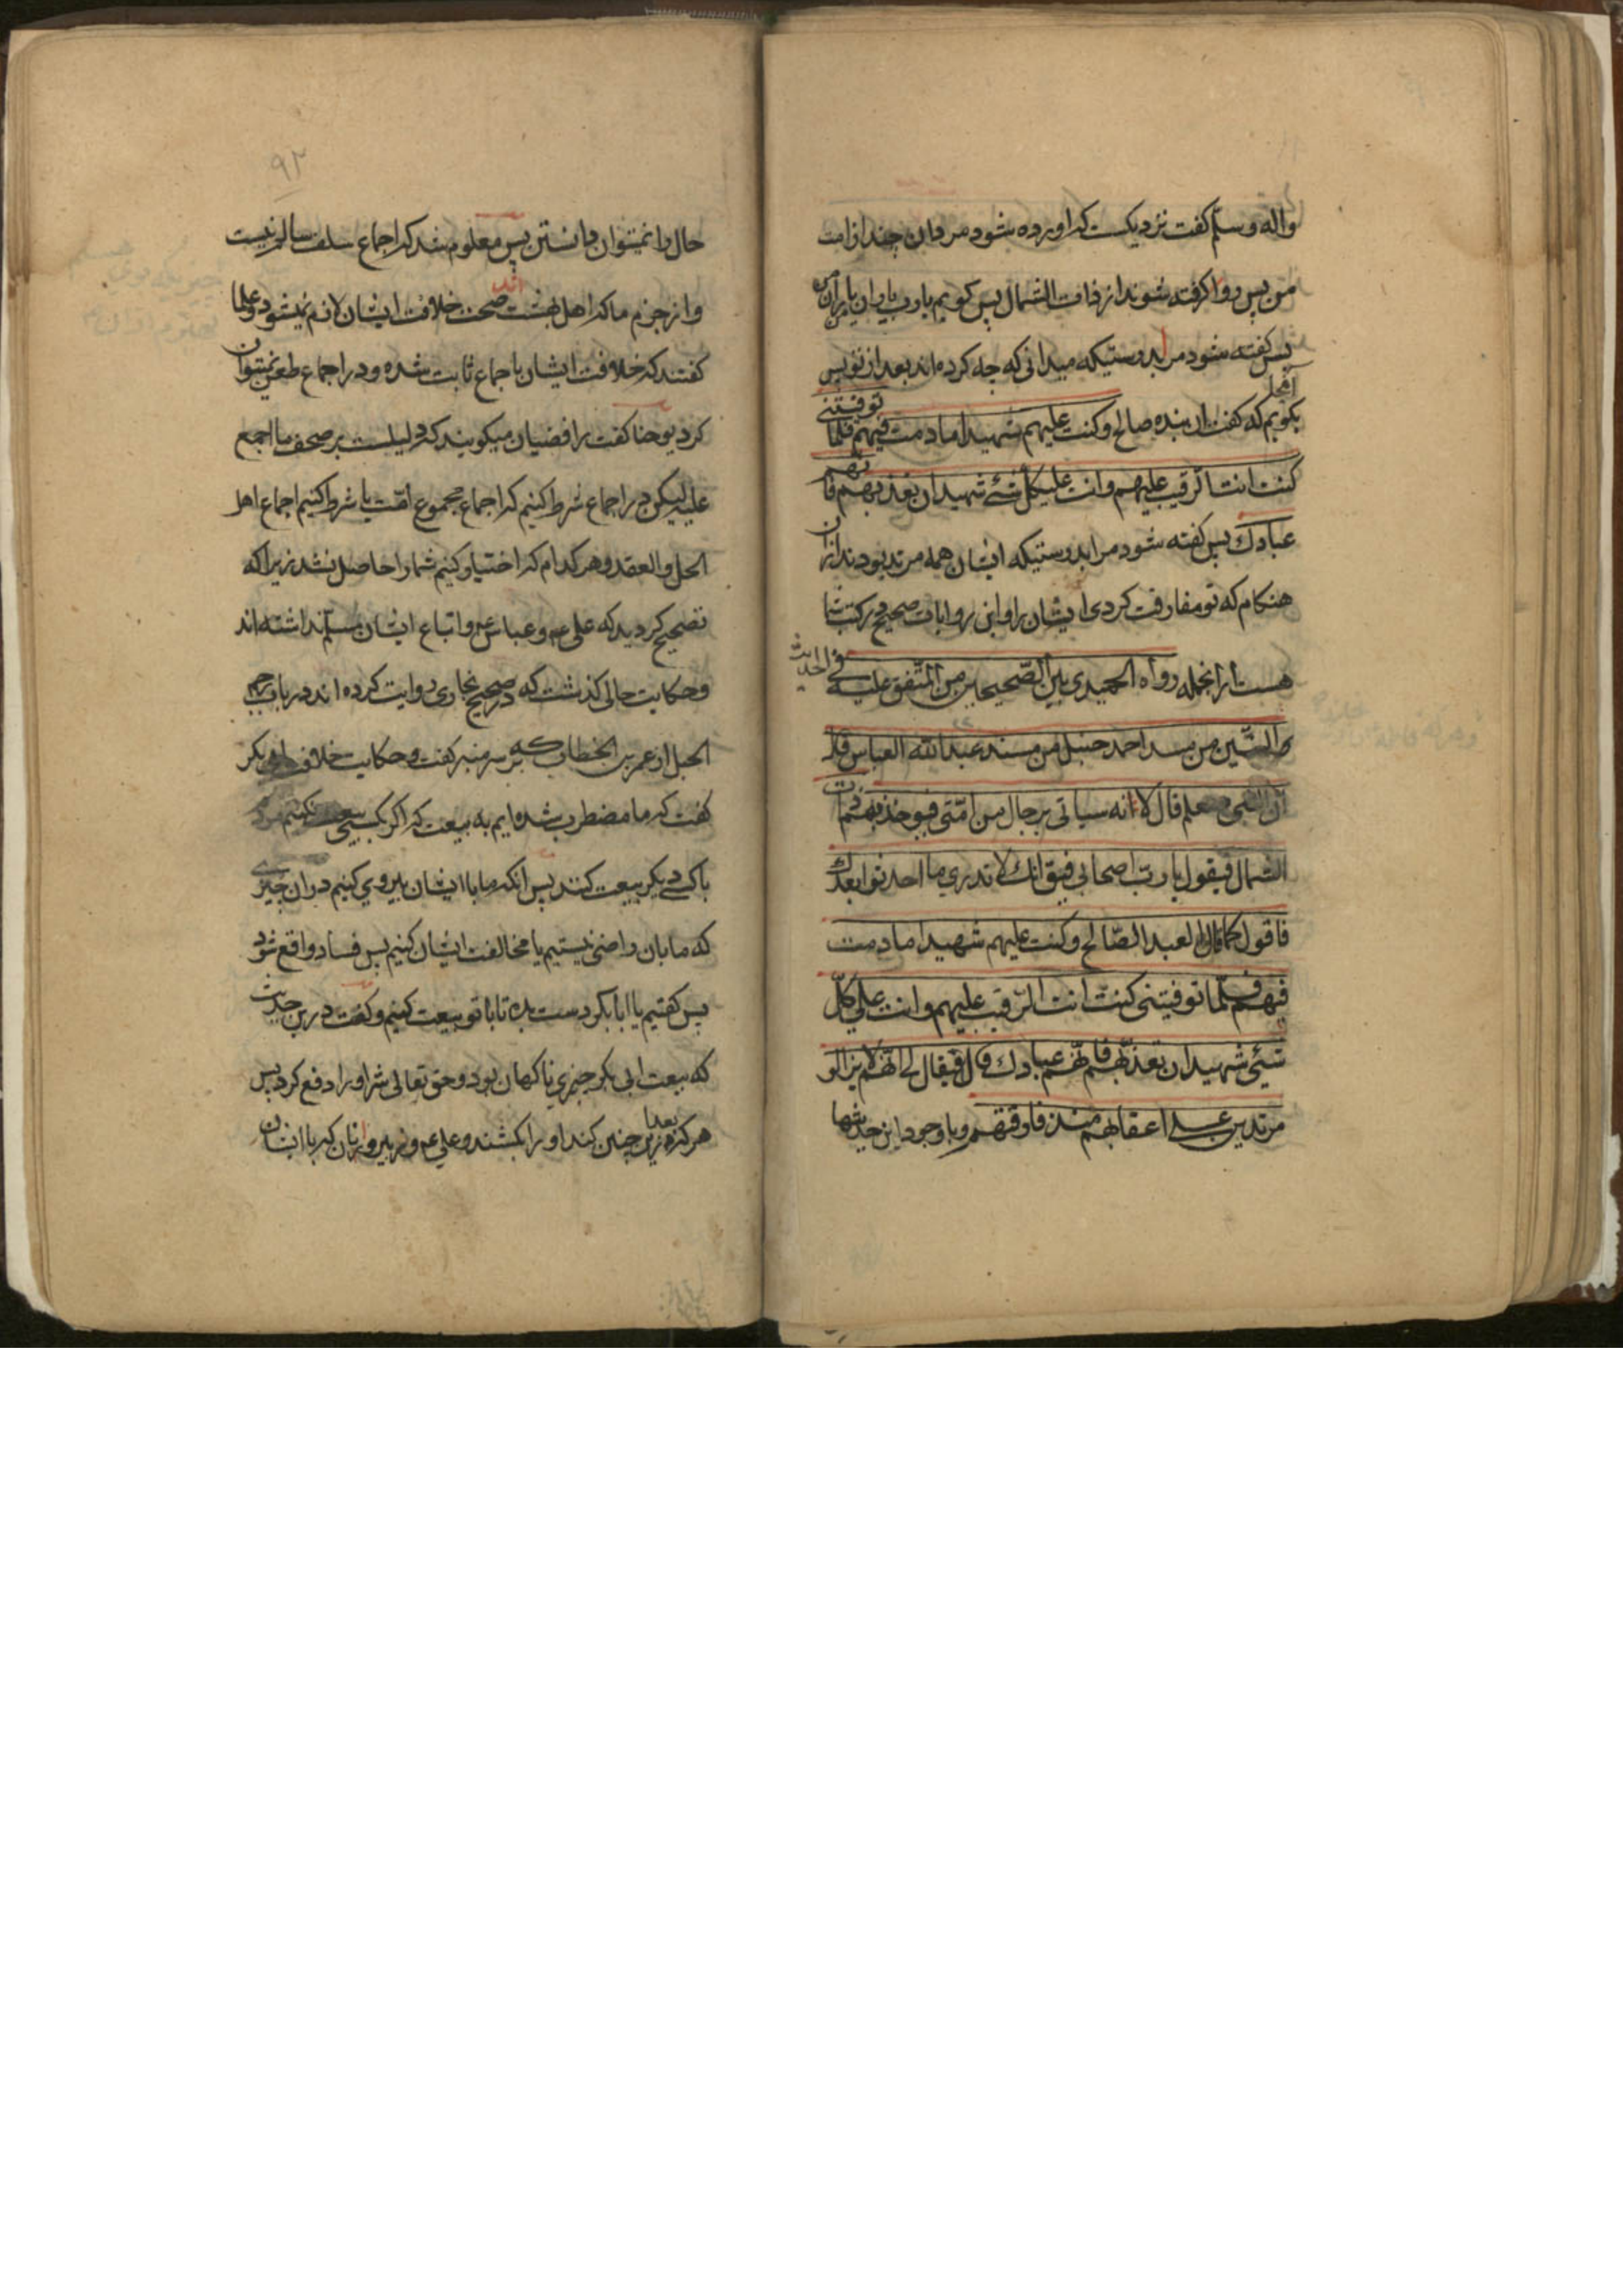 واله وسلم کفت نزدیکست که اورده شود مردمان چند از امت
من پس روا کرفته شوند از ذات الشمال پس کویم یارب یاران یاران من
پس کفته شود مرا بدرستیکه میدانی که چه کرده‌اند بعد از تو پس
بکویم که کفت ان بنده صالح وکنت علیهم شهیدا ما دمت فیهم فلما توفیتنی
کنت انت الرقیب علیهم وانت علی کل شئ شهید ان تعذبهم فانهم
عبادك پس کفته شود مرا بدرستیکه ایشان همه مرتد بودند از ان
هنکام که تو مفارقت کردی ایشان را و این روایات صحیح در کتب شما
هست از انجمله رواه الحمیدی بین الصحیحین من المتفق علیه فی الحدیث
والستین من مسند احمد حنبل من مسند عبدالله العباس قال
ان النبی صلعم قال الا انه سیاتی برجال من امتی فیوخذ بهم ذات
الشمال فیقول یا رب اصحابی فیق انك لا تدری ما احدثوا بعدك
فاقول کما قال العبد الصالح وکنت علیهم شهیدا ما دمت
فیهم فلما توفیتنی کنت انت الرقیب علیهم وانت علی کل
شیئ شهید ان تعذبهم فانهم عبادك قال فیقال لی انهم لا یزالو
مرتدین علی اعقابهم منذ فارقتهم و باوجود این حدیثها
۹۲
حال را نمیتوان دانستن پس معلوم شد که اجماع سلف سالم نیست
و از جزم ما که اهل بهشت اند صحت خلافت ایشان لازم نمیشود و علما
کفتند که خلافت ایشان باجماع ثابت شده و در اجماع طعن نمیتوان
کرد یوحنا کفت رافضیان میکویند که دلیلست بر صحف ما اجمع
علیه لیکن در اجماع شرط کنیم که اجماع مجموع امت یا شرط کنیم اجماع اهل
الحل والعقد و هر کدام که اختیار کنیم شما را حاصل نشد زیرا که
تصحیح کردید که علی ع و عباس و اتباع ایشان مسلم نداشته اند
و حکایت حالی کذشت که در صحیح بخاری روایت کرده اند در باب رجم
الحبل از عمر بن الخطاب که بر سر منبر کفت و حکایت خلافت ابی بکر
کفت که ما مضطرب شده‌ایم به بیعت که اکر بکسی بیعت نکنیم
باکسی دیکر بیعت کنند پس انکه ما با ایشان پیروی کنیم در ان چیزی
که ما بان راضی نیستیم یا مخالفت ایشان کنیم پس فساد واقع شود
پس کفتیم یا ابابکر دست بده تا با تو بیعت کنیم و کفت درین حدیث
که بیعت ابی بکر چیزی ناکهان بود و حق تعالی شر او را دفع کرد پس
هر که بعد ازین چنین کند او را بکشند و علی ع و زبیر و انان که با ایشان